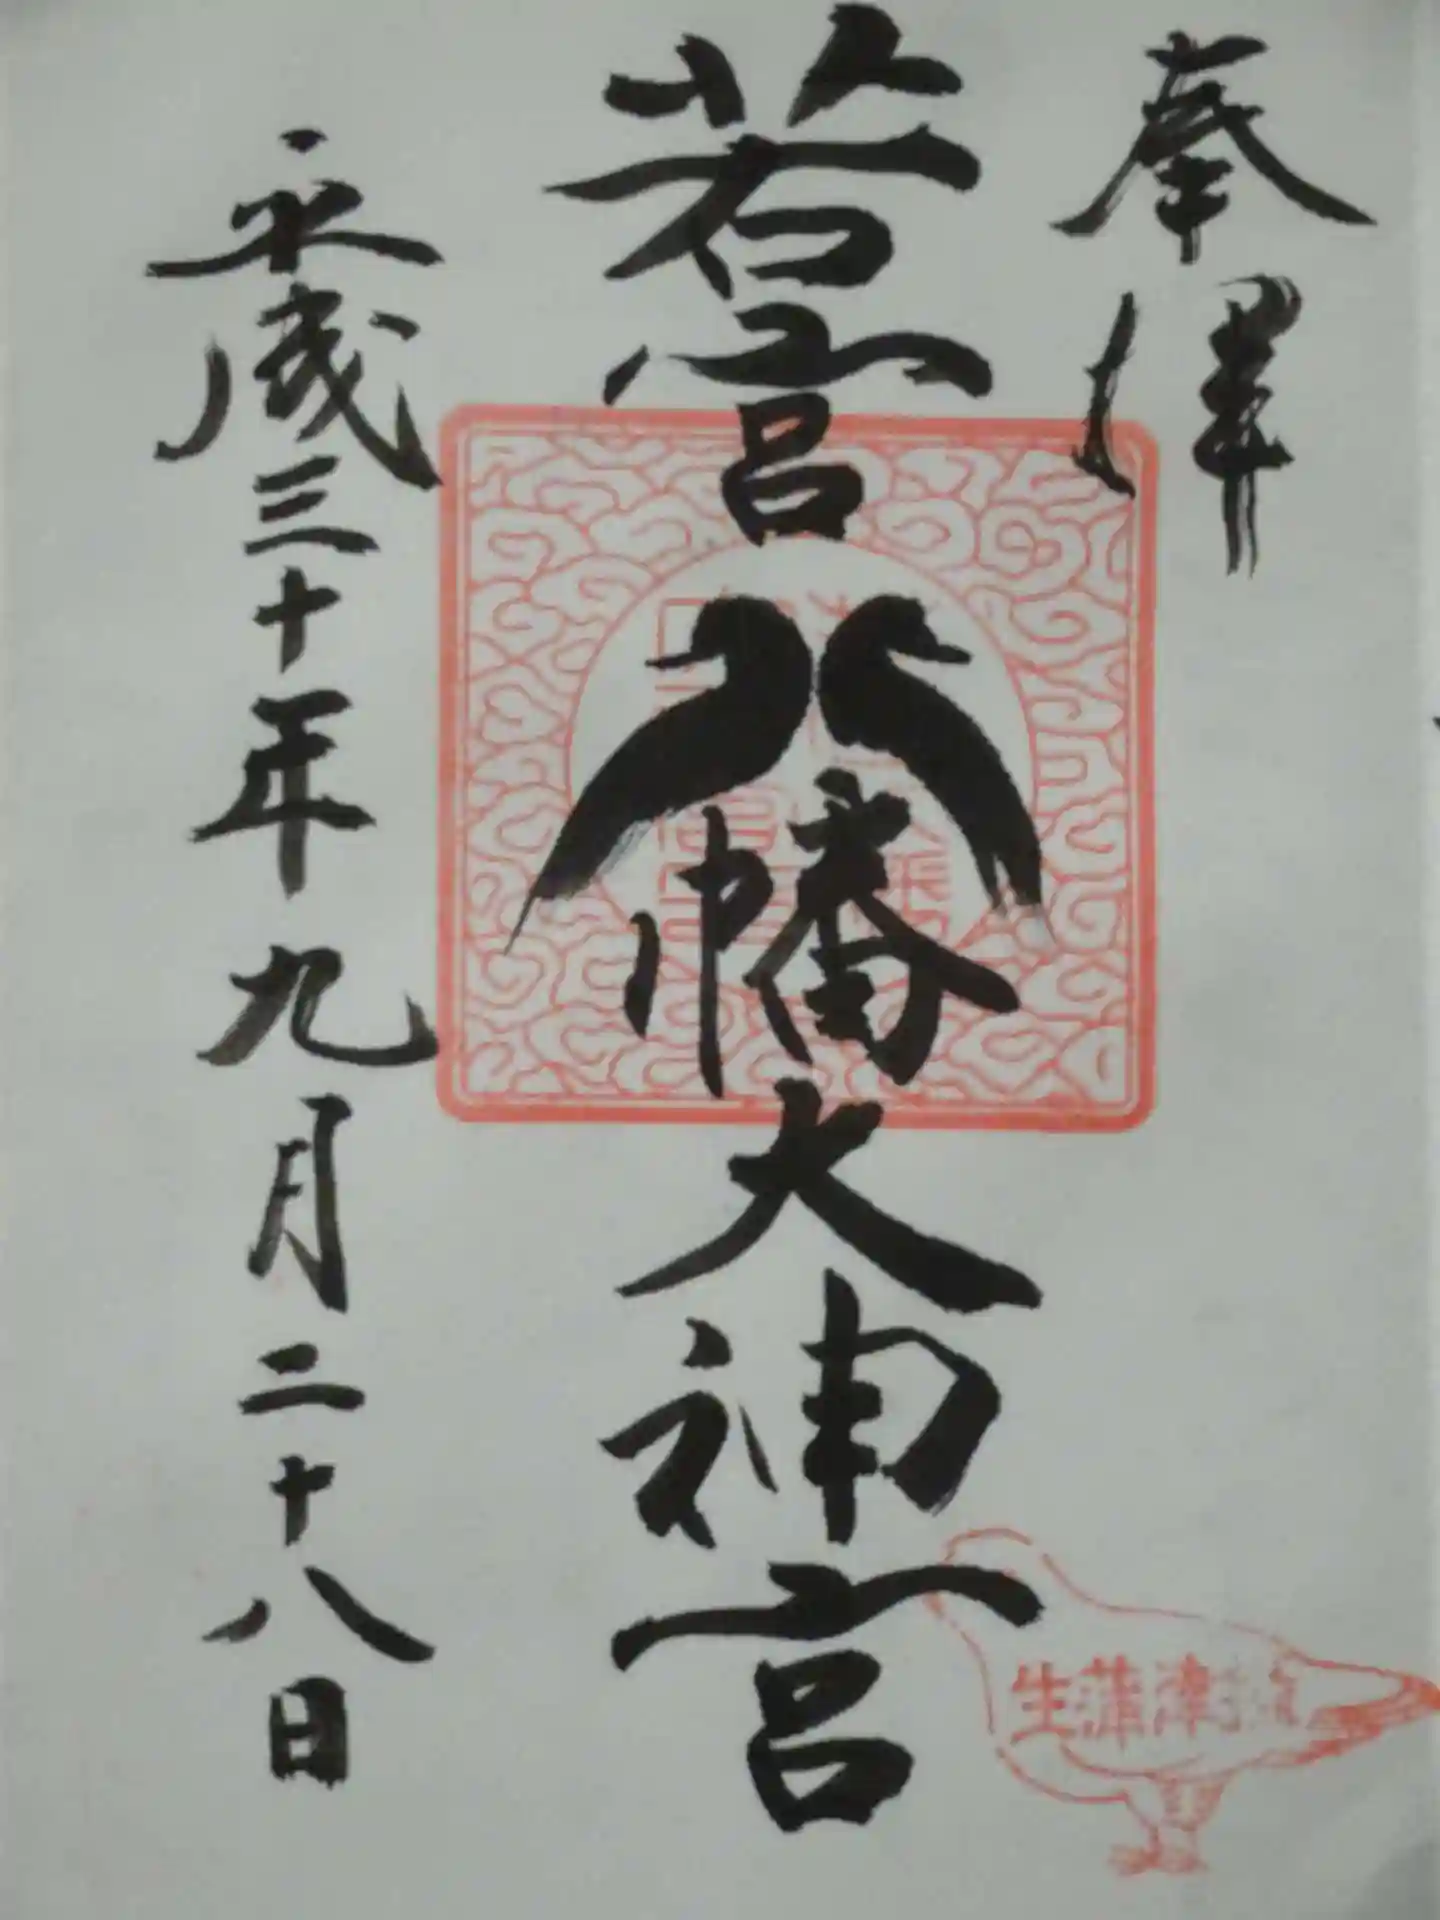 奉拝
若宮八幡大神宮
平成三十年九月二十八日
摂津蒲生